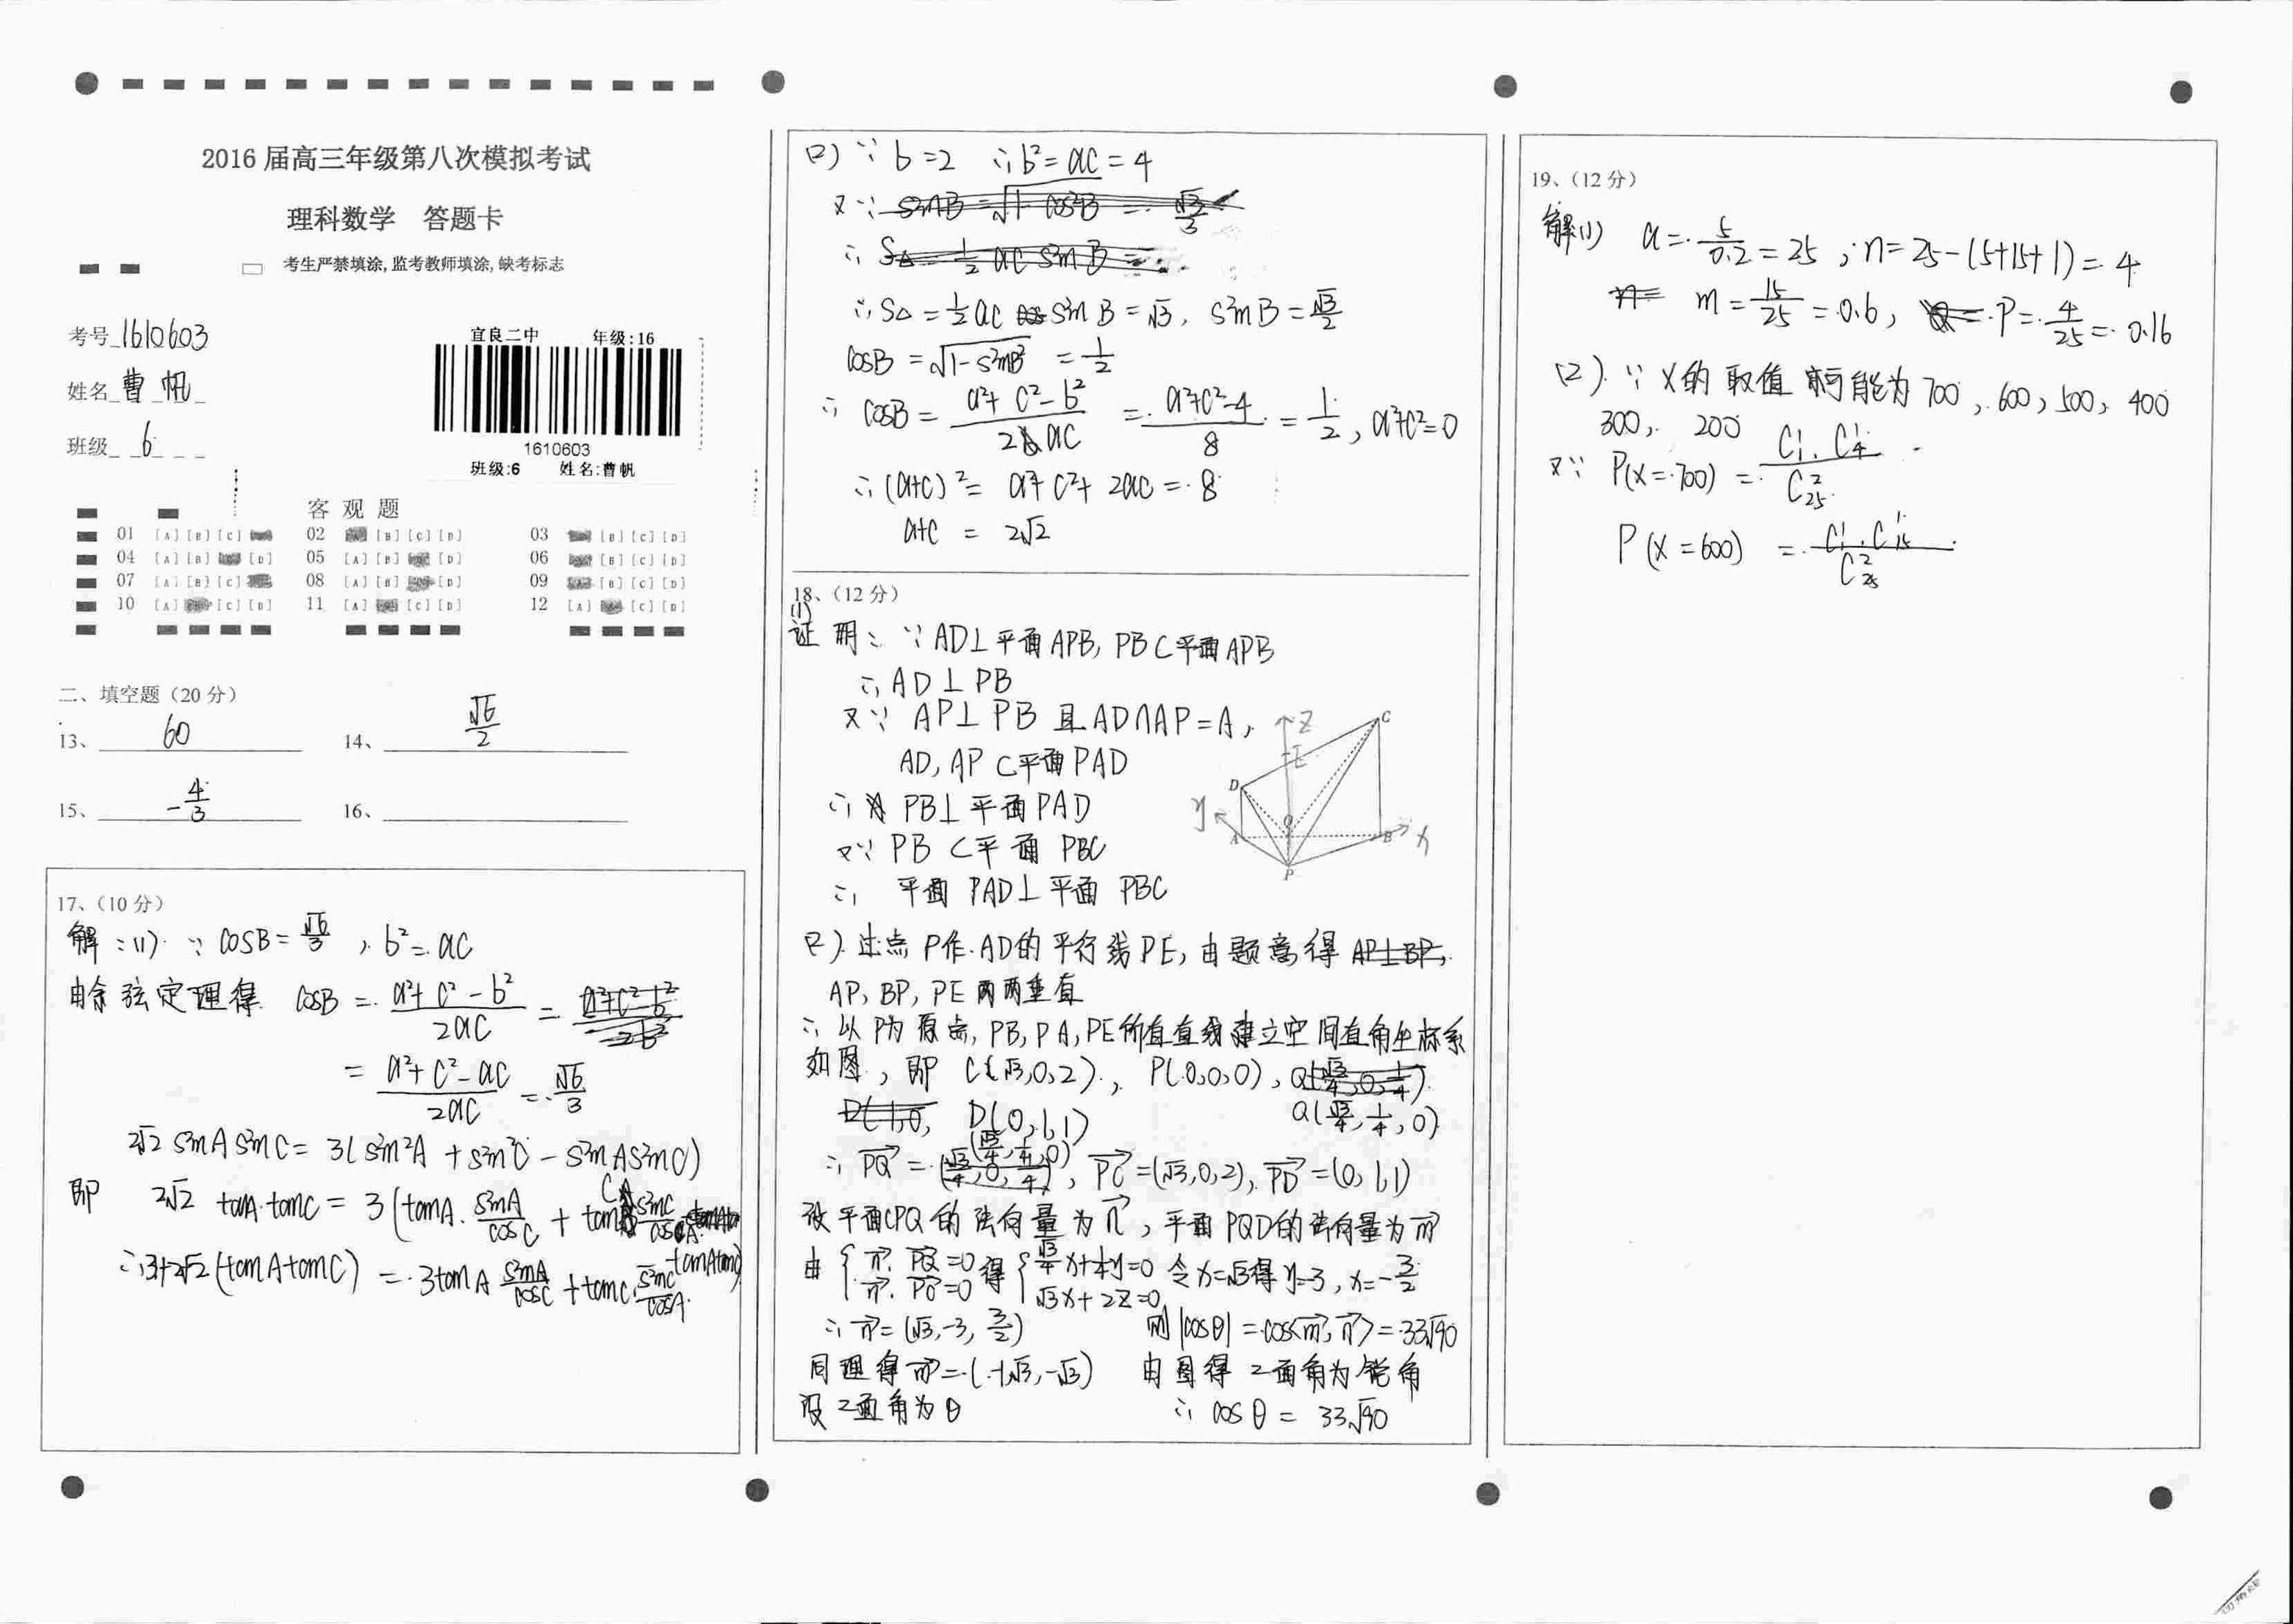 2016 届高三年级第八次模拟考试
理科数学 答题卡
考生严禁填涂,监考教师填涂,缺考标志
考号 1610603
姓名 曹帆
班级 6
宜良二中 年级:16
1610603
班级:6 姓名:曹帆
客 观 题
01 [A] [B] [C] 02 [B] [C] [D] 03 [B] [C] [D]
04 [A] [B] [D] 05 [A] [B] [D] 06 [B] [C] [D]
07 [A] [B] [C] 08 [A] [B] [D] 09 [B] [C] [D]
10 [A] [C] [D] 11 [A] [C] [D] 12 [A] [C] [D]
二、填空题（20 分）
13、 60 14、 √6/2
15、 -4/3 16、
17、（10 分）
解:(1) ∵ cosB = √6/3 , b² = ac
由余弦定理得 cosB = (a²+c²-b²)/2ac =
= (a²+c²-ac)/2ac = √6/3
2√2 sinA sinC = 3(sin²A + sin²C - sinAsinC)
即 2√2 tanA·tanC = 3(tanA· sinA/cosC + tanC sinC/cosA - tanAtanC)
∴ 3+2√2(tanAtanC) = 3tanA sinA/cosC + tanC· sinC/cosA
(2) ∵ b=2 ∴ b²=ac=4
又∵
∴
∴ S△ = 1/2 ac sinB = √3, sinB = √3/2
cosB = √(1-sinB²) = 1/2
∴ cosB = (a²+c²-b²)/2ac = (a²+c²-4)/8 = 1/2, a²+c²=0
∴ (a+c)² = a²+c²+2ac = 8
a+c = 2√2
18、（12 分）
(1)
证明: ∵ AD⊥平面APB, PB⊂平面APB
∴ AD⊥PB
又∵ AP⊥PB 且AD∩AP=A,
AD, AP⊂平面PAD
∴ PB⊥平面PAD
又∵ PB⊂平面 PBC
∴ 平面 PAD⊥平面 PBC
Z
C
E
D
y
Q
A
B
x
P
(2) 过点P作AD的平行线PE, 由题意得
AP, BP, PE两两垂直
∴ 以P为原点, PB, PA, PE所在直线建立空间直角坐标系
如图, 即 C(√3,0,2), P(0,0,0),
D(0,1,1) Q(√3/4, 1/4, 0)
∴ PQ = (√3/4, 1/4, 0), PC=(√3,0,2), PD=(0,1,1)
设平面CPQ的法向量为n, 平面PQD的法向量为m
由 { n·PQ=0 n·PC=0 得 { √3/4x+1/4y=0 √3x+2z=0 令x=√3得y=3, x=-3/2
∴ n=(√3,-3, 3/2) 则|cosθ|=cos<m,n>=33√90
同理得m=(-1,√3,-√3) 由图得二面角为锐角
设二面角为θ ∴ cosθ = 33√90
19、（12 分）
解(1) a = 5/0.2 = 25 ; n=25-(5+15+1)=4
m = 15/25 = 0.6, P = 4/25 = 0.16
(2) ∵ X的取值可能为700, 600, 500, 400
300, 200
又∵ P(X=700) = C¹₁·C¹₄/C²₂₅
P(X=600) = C¹₁·C¹₁₅/C²₂₅